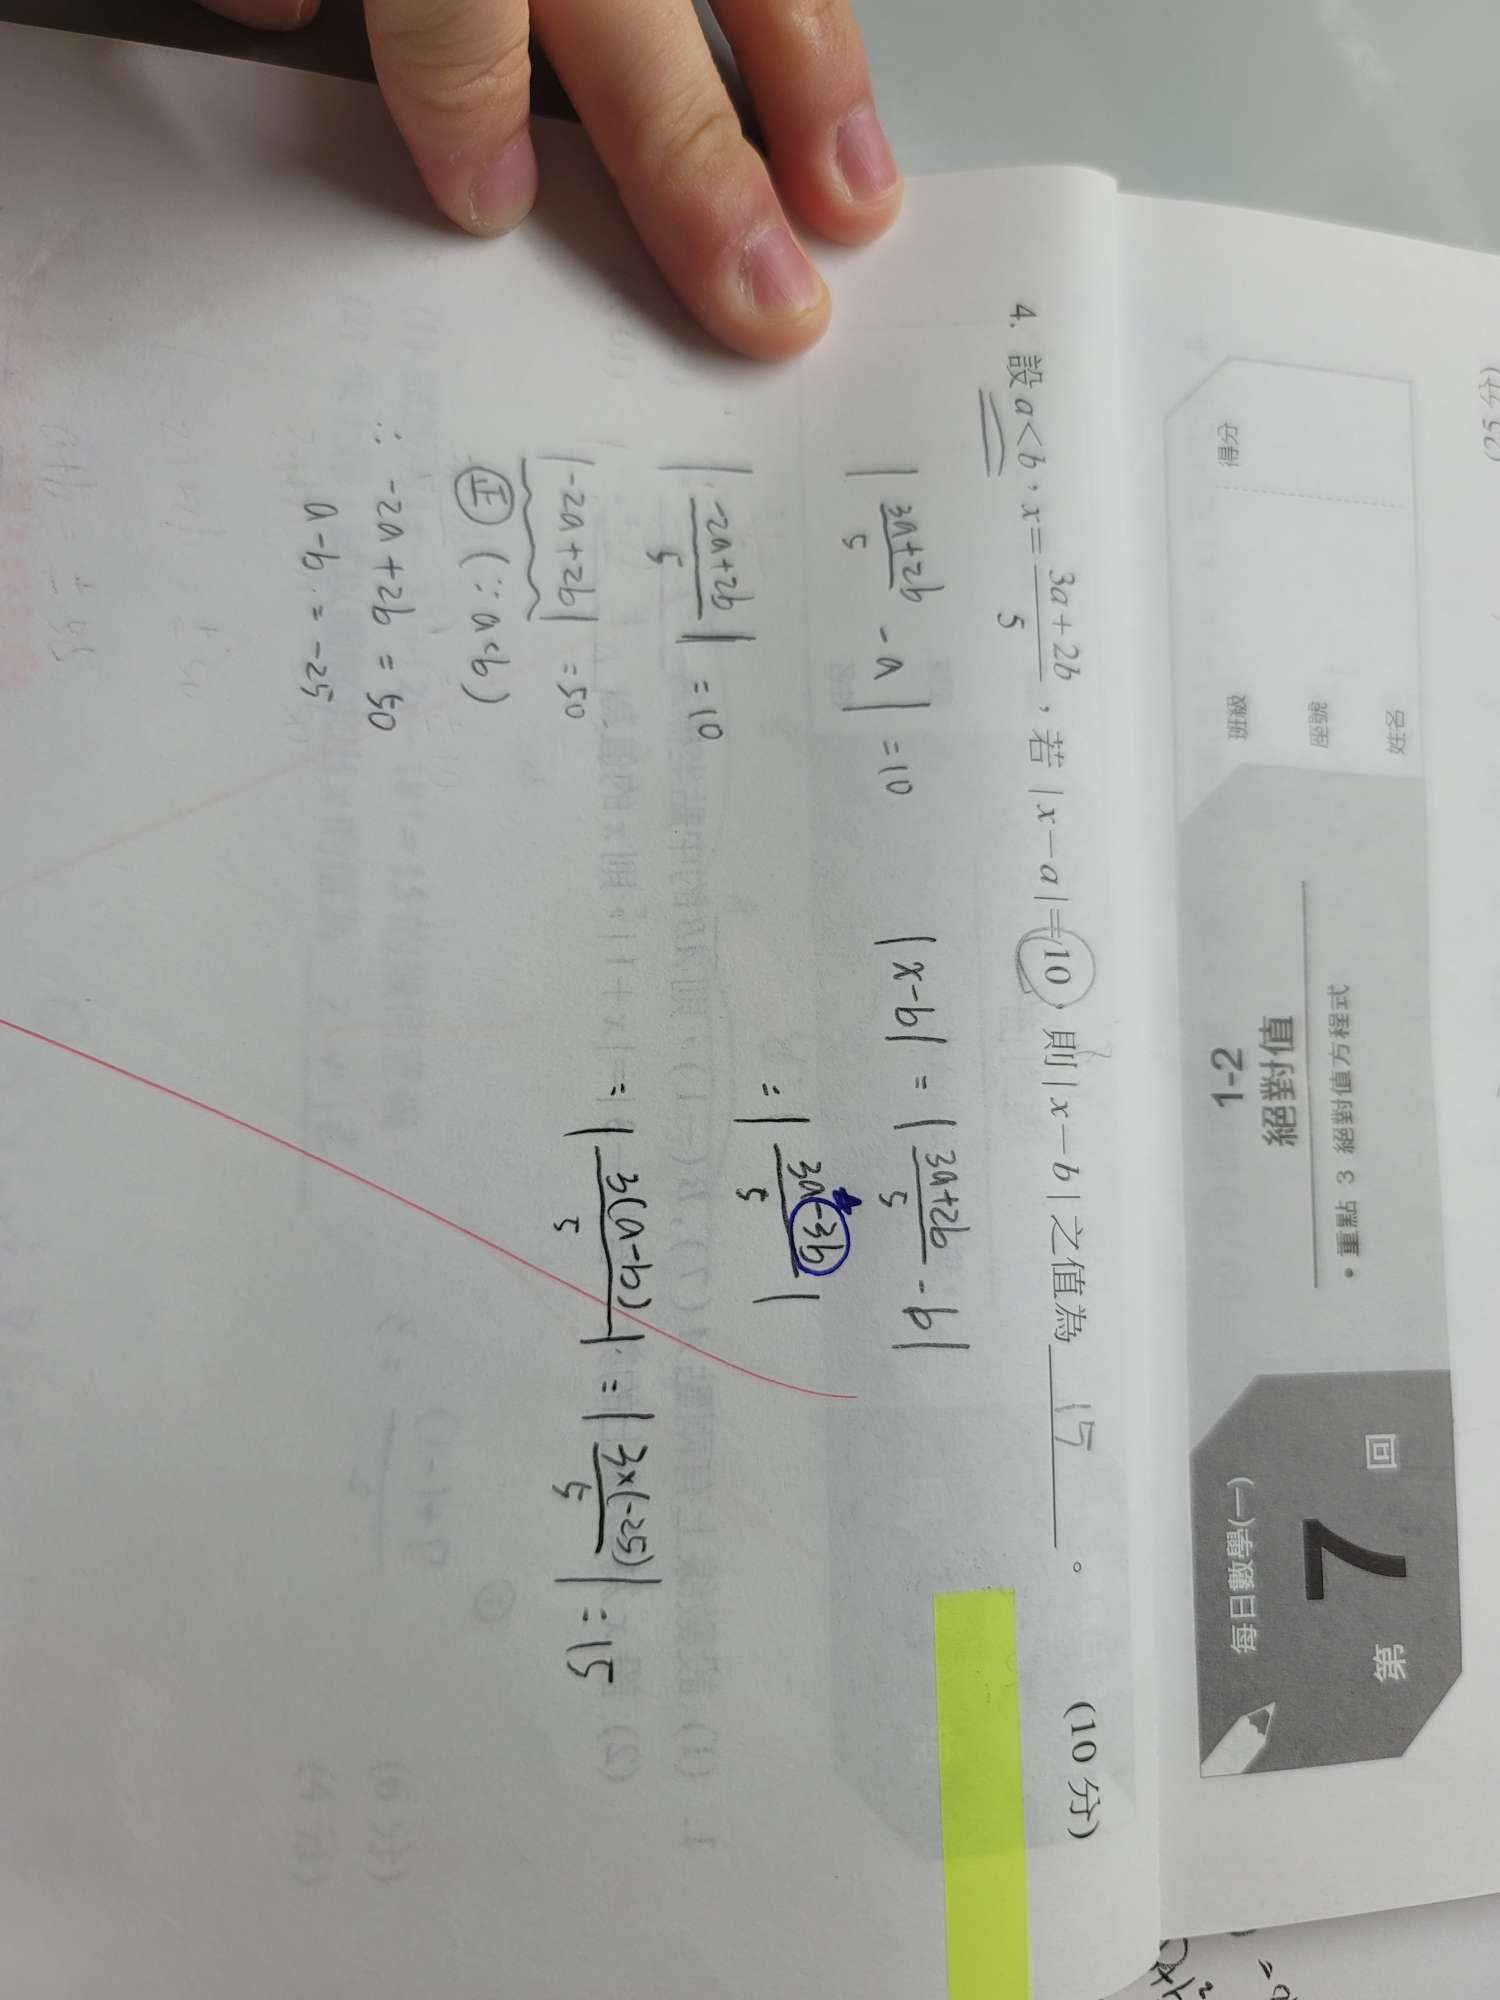 4. 設 a<b，x=\frac{3a+2b}{5}，若 |x-a|=10，則 |x-b| 之值為 15 。 (10分)
|\frac{3a+2b}{5} - a| = 10
|\frac{-2a+2b}{5}| = 10
|-2a+2b| = 50
正 (∵a<b)
∴ -2a+2b = 50
a-b = -25
|x-b| = |\frac{3a+2b}{5} - b|
= |\frac{3a-3b}{5}|
= |\frac{3(a-b)}{5}| = |\frac{3×(-25)}{5}| = 15
第 7 回
每日數學(一)
1-2
絕對值
• 重點 3 絕對值方程式
姓名
座號
班級
得分